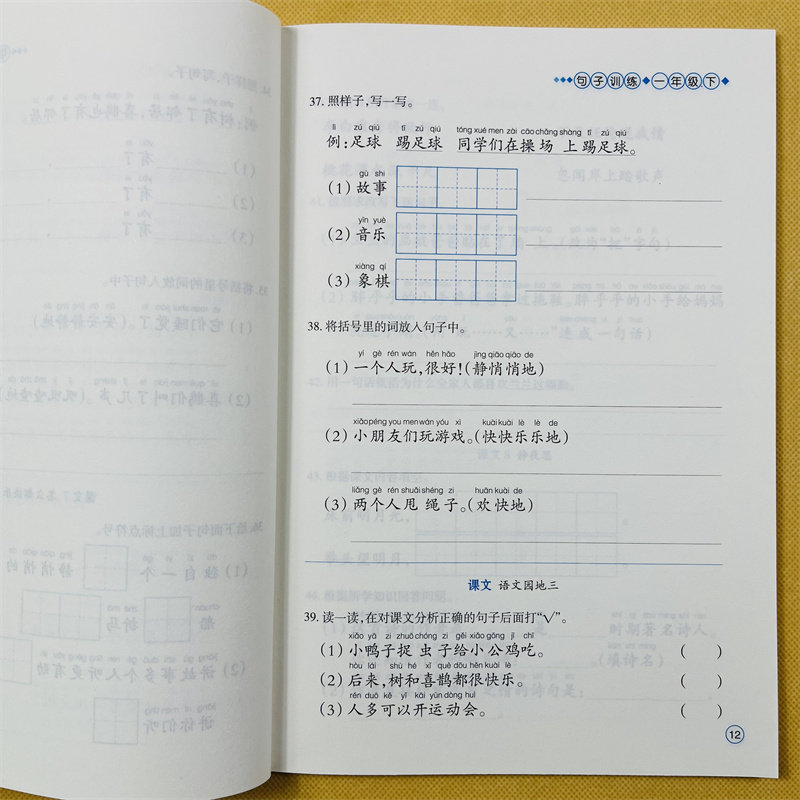 句子训练◆一年级下
37. 照样子,写一写。
lì zú qiú tī zú qiú tóng xué men zài cāo chǎng shàng tī zú qiú
例:足球 踢足球 同学们在操场上踢足球。
gù shi
(1) 故事
yīn yuè
(2) 音乐
xiàng qí
(3) 象棋
38. 将括号里的词放入句子中。
yí gè rén wán hěn hǎo jìng qiāo qiāo de
(1) 一个人玩,很好!(静悄悄地)
xiǎo péng you men wán yóu xì kuài kuài lè lè de
(2) 小朋友们玩游戏。(快快乐乐地)
liǎng gè rén shuǎi shéng zi huān kuài de
(3) 两个人甩绳子。(欢快地)
课文 语文园地三
39. 读一读,在对课文分析正确的句子后面打“√”。
xiǎo yā zi zhuō chóng zi gěi xiǎo gōng jī chī
(1) 小鸭子捉虫子给小公鸡吃。 ( )
hòu lái shù hé xǐ què dōu hěn kuài lè
(2) 后来,树和喜鹊都很快乐。 ( )
rén duō kě yǐ kāi yùn dòng huì
(3) 人多可以开运动会。 ( )
12